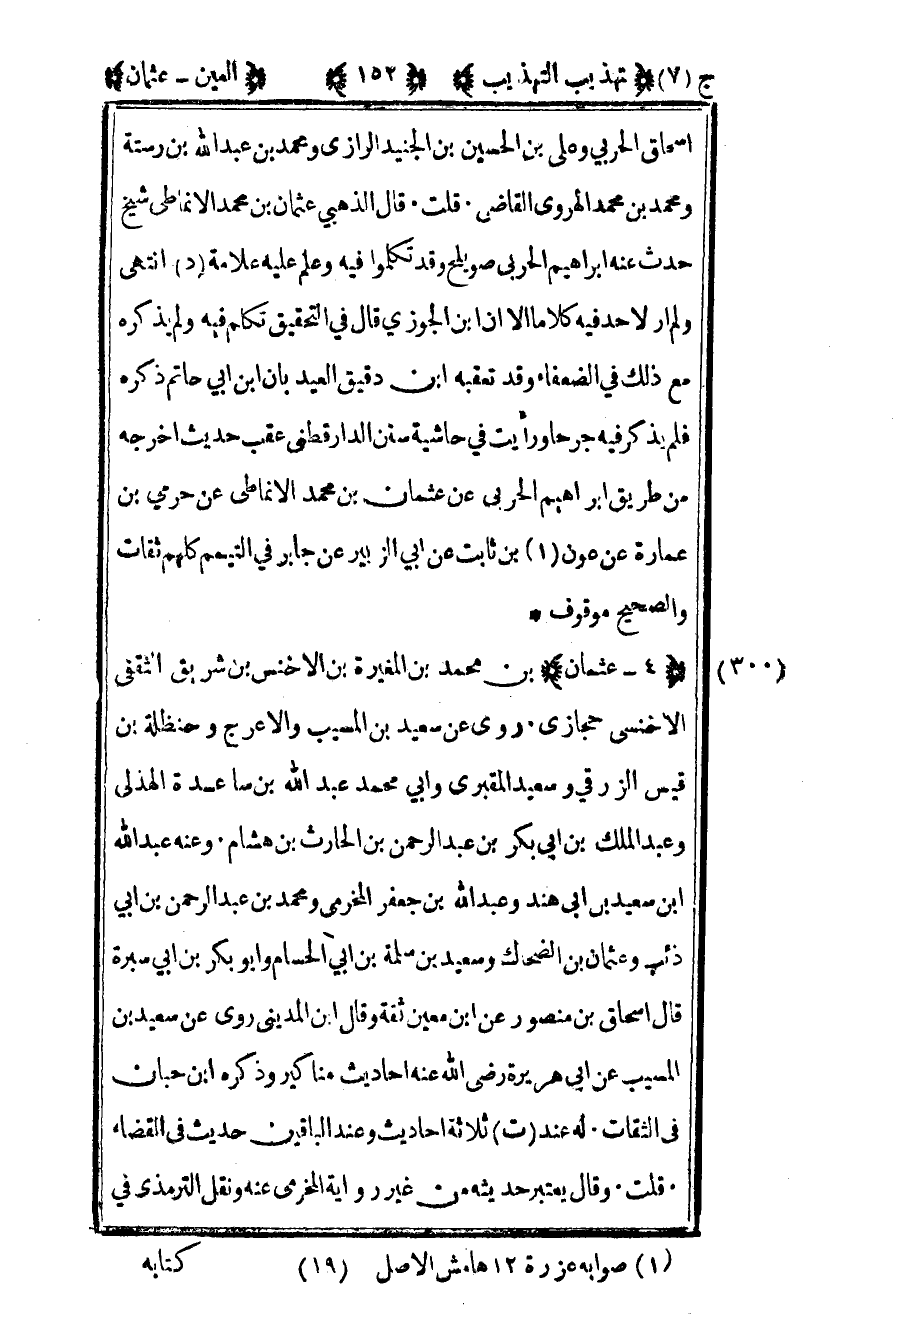 ج (٧) ﴿ تهذيب التهذيب ﴾ ﴿ ١٥٢ ﴾ ﴿ العين ـ عثمان ﴾
اسحاق الحربي وعلى بن الحسين بن الجنيد الرازى ومحمد بن عبدالله بن رستة
ومحمد بن محمد الهروى القاضى · قلت · قال الذهبي عثمان بن محمد الانماطى شيخ
حدث عنه ابراهيم الحربى صويلح وقد تكلموا فيه وعلم عليه علامة (د) انتهى
ولم ار لاحد فيه كلاما الا ان ابن الجوزي قال في التحقيق تكلم فيه ولم يذكره
مع ذلك في الضعفاء وقد تعقبه ابن دقيق العيد بان ابن ابي حاتم ذكره
فلم يذكر فيه جرحا ورأيت في حاشية سنن الدارقطنى عقب حديث اخرجه
من طريق ابراهيم الحربى عن عثمان بن محمد الانماطى عن حرمي بن
عمارة عن عون (١) بن ثابت عن ابي الزبير عن جابر في التيمم كلهم ثقات
والصحيح موقوف *
(٣٠٠) ﴿ ٤ ـ عثمان ﴾ بن محمد بن المغيرة بن الاخنس بن شريق الثقفى
الاخنسى حجازى · روى عن سعيد بن المسيب والاعرج وحنظلة بن
قيس الزرقي وسعيد المقبرى وابي محمد عبد الله بن ساعدة الهذلى
وعبد الملك بن ابي بكر بن عبد الرحمن بن الحارث بن هشام · وعنه عبدالله
ابن سعيد بن ابى هند وعبدالله بن جعفر المخرمى ومحمد بن عبدالرحمن بن ابي
ذئب وعثمان بن الضحاك وسعيد بن سلمة بن ابي الحسام وابو بكر بن ابي سبرة
قال اسحاق بن منصور عن ابن معين ثقة وقال ابن المدينى روى عن سعيد بن
المسيب عن ابي هريرة رضى الله عنه احاديث مناكير وذكره ابن حبان
فى الثقات · له عند (ت) ثلاثة احاديث وعند الباقين حديث فى القضاء
· قلت · وقال يعتبر حديثه من غير رواية المخرمى عنه ونقل الترمذى في
(١) صوابه عزرة ١٢ هامش الاصل (١٩) كتابه